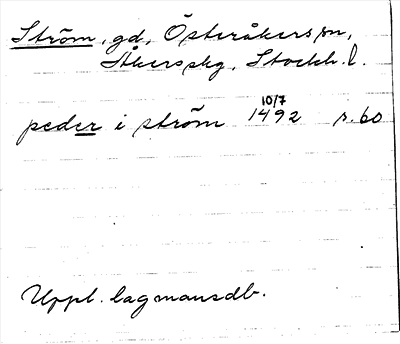 Ström, gd, Österåkers sn,
Åkers skg, Stockh. l.
10/7
peder i ström 1492 s. 60
Uppl. lagmansdb.